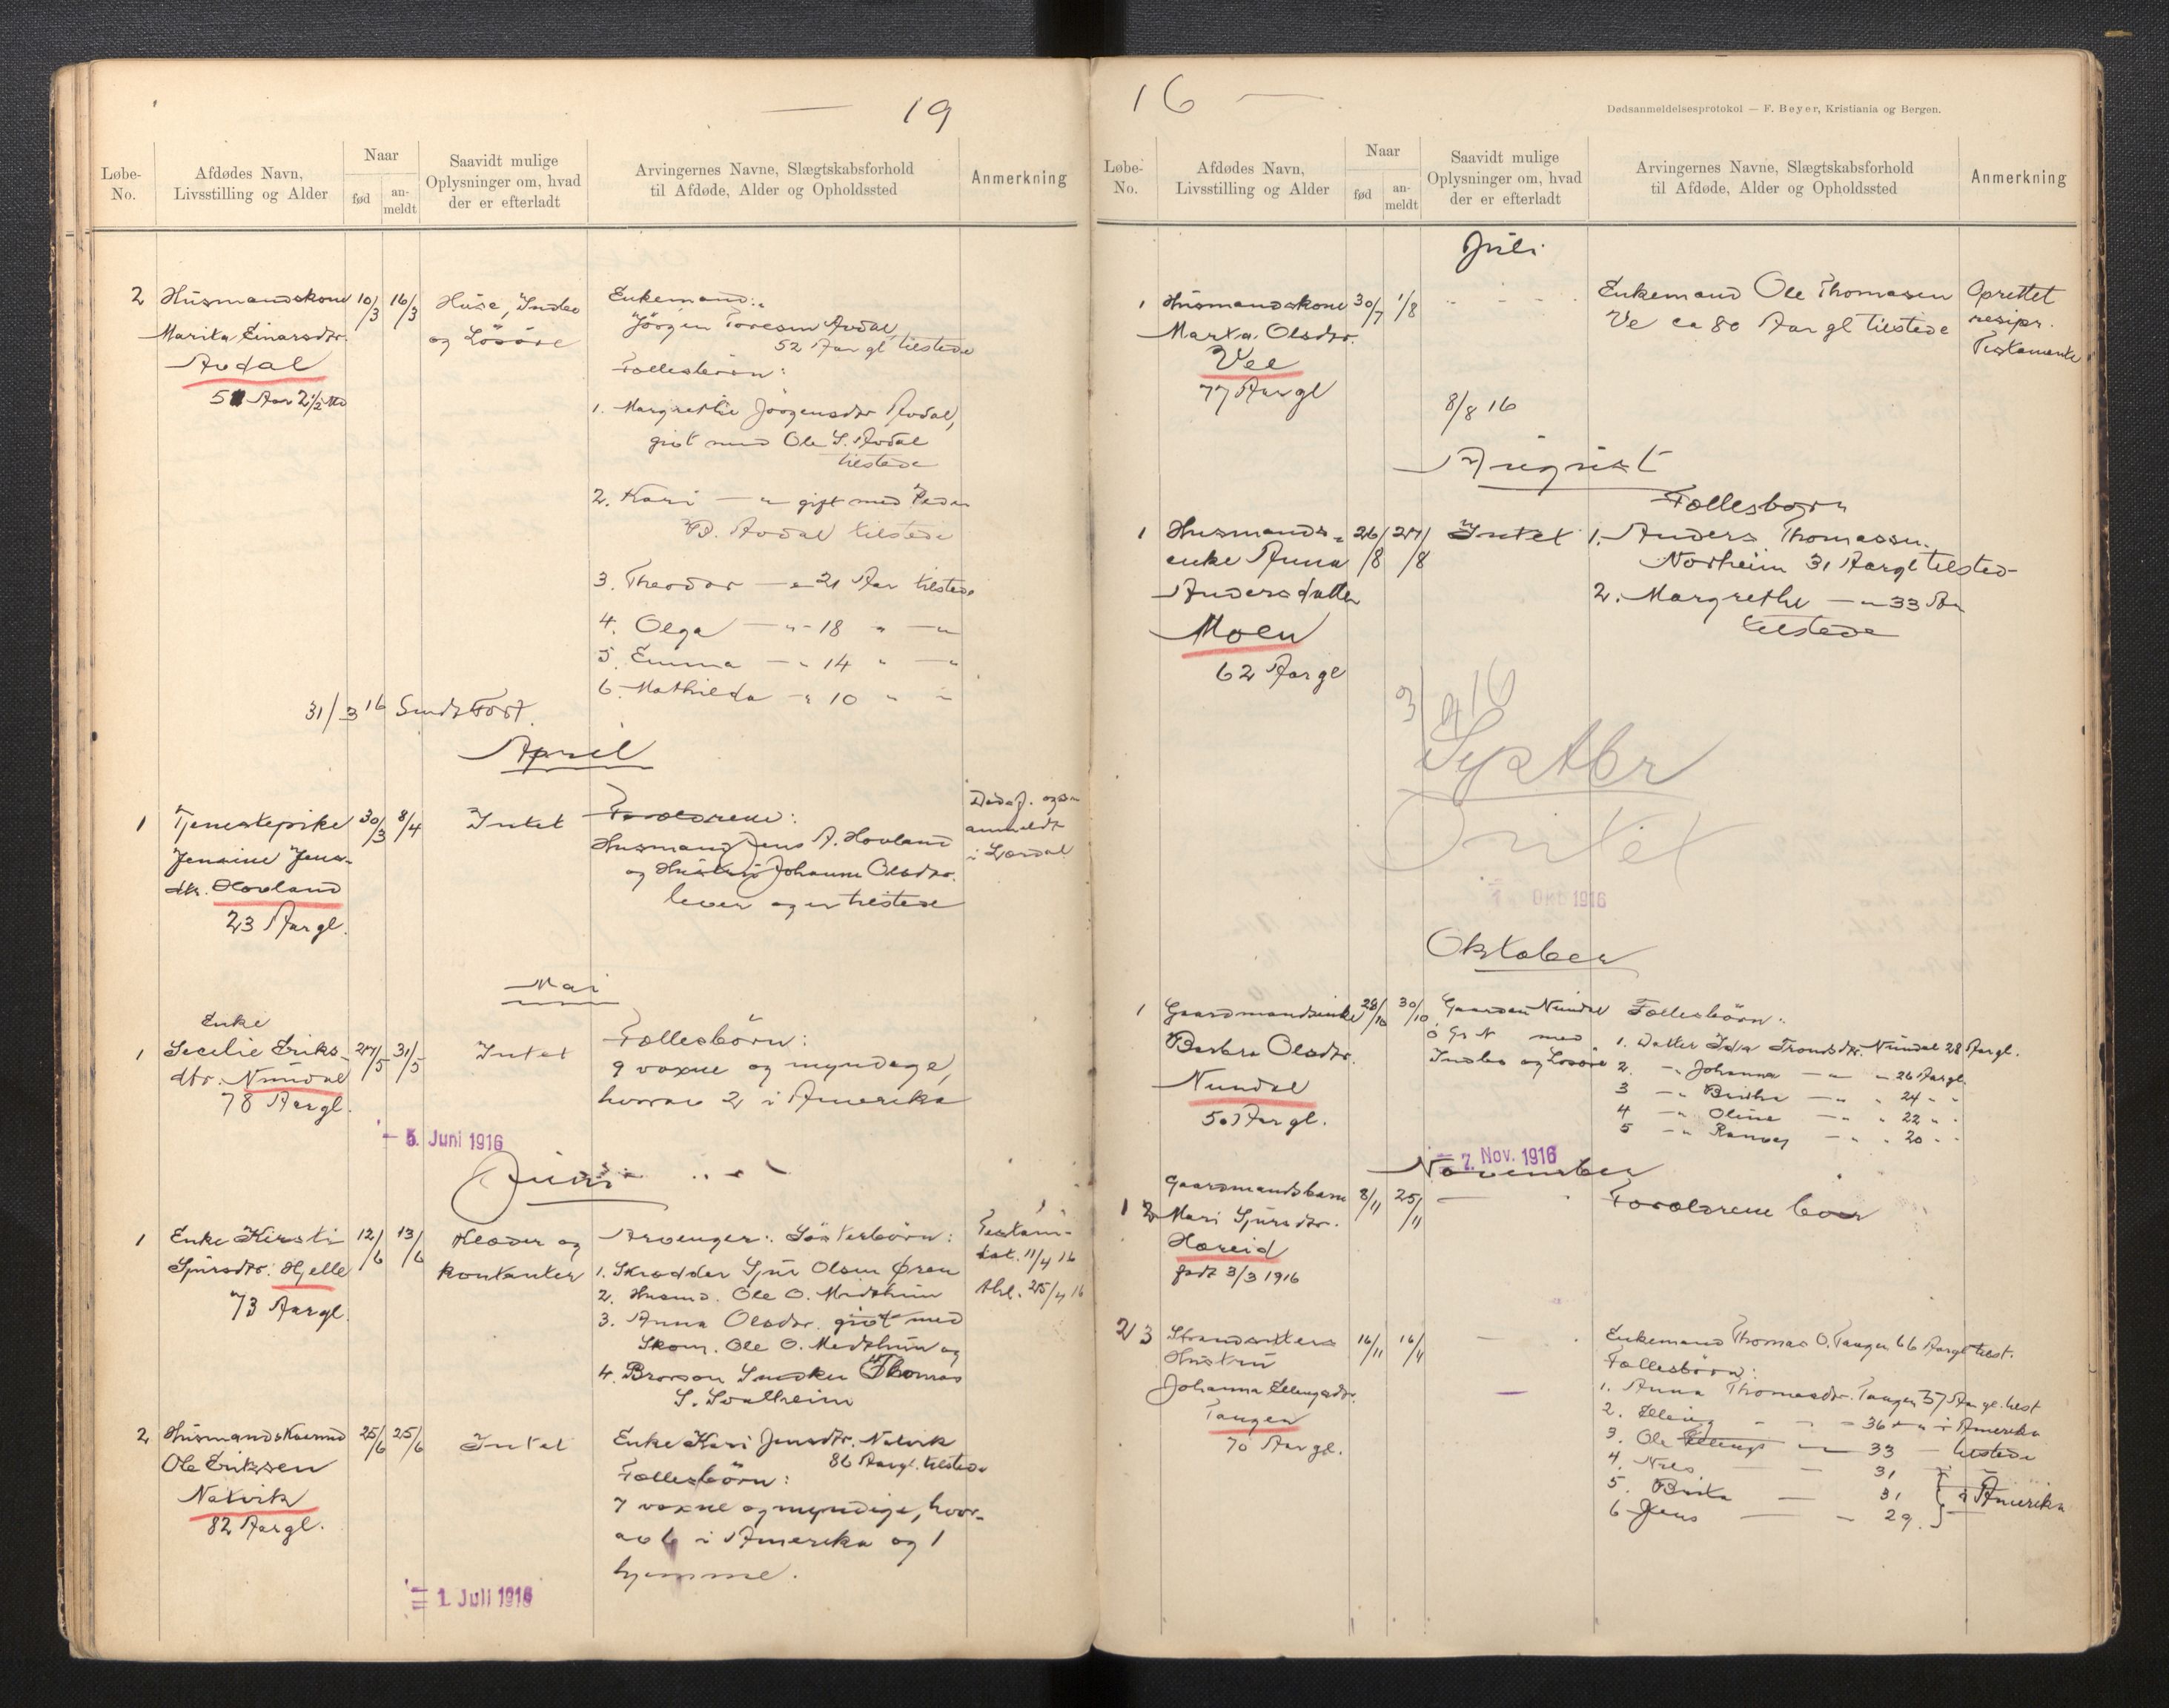 19
Løbe-
No.
Afdødes Navn,
Livsstilling og Alder
Naar
fød
an-
meldt
Saavidt mulige
Oplysninger om, hvad
der er efterladt
Arvingernes Navne, Slægtskabsforhold
til Afdøde, Alder og Opholdssted
Anmerkning
2 Husmandskone 10/3 16/3 Huse, Indbo
Marita Einarsdtr. og Lösöre
Avdal
Aar 2 1/2 Md
Enkemand:
Jörgen Toresen Avdal,
52 Aar gl tilstede
Fællesbörn:
1. Margrethe Jörgensdtr Avdal,
givt med Ole S. Avdal
tilstede
2. Kari — " gift med Peder
B. Avdal tilstede
3. Theodor — " 21 Aar tilstede
4. Olga — " - 18 " — "
5. Emma — " 14 " — "
6. Mathilda — " 10 " "
31/3 16 Sendt Fosf.
April
1 Tjenestepike 30/3 8/4 Intet
Jensine Jens-
dtr. Hovland
23 Aar gl.
Forældrene:
Husmand Jens A. Hovland
og Hustru Johanne Olsdtr.
lever og er tilstede
Dödsf. ogsaa
anmeldt
i Lærdal
Mai
Enke
1 Secilie Eriks- 27/5 31/5 Intet
dtr. Nundal
78 Aar gl.
Fællesbörn:
9 voxne og myndige,
hvorav 2 i Amerika
- 5. Juni 1916
Juni
1 Enke Kirsti 12/6 13/6 Klæder og
Sjursdtr. Hjelle kontanter
73 Aar gl.
Arvinger: Sösterbörn:
1. Skrædder Sjur Olsen Øren
2. Husmd. Ole O. Medhim
3. Anna Olsdtr. givt med
Skom. Ole O. Medhim og
4. Brorsön Snedker Thomas
S. Svalheim
Testam-
dat. 11/4 16
thl. 25/4 16
2 Husmandskaarmd 25/6 25/6 Intet
Ole Eriksen
Natvik
82 Aar gl.
Enke Kari Jensdtr. Natvik
86 Aar gl. tilstede
Fællesbörn:
7 voxne og myndige, hvor-
av 6 i Amerika og 1
hjemme.
= 1. Juli 1916
16
Dødsanmeldelsesprotokol — F. Beyer, Kristiania og Bergen.
Løbe-
No.
Afdødes Navn,
Livsstilling og Alder
Naar
fød
an-
meldt
Saavidt mulige
Oplysninger om, hvad
der er efterladt
Arvingernes Navne, Slægtskabsforhold
til Afdøde, Alder og Opholdssted
Anmerkning
Juli
1 Husmandskone 30/7 1/8 " - - -
Marta Olsdtr.
Vee
77 Aar gl
Enkemand Ole Thomasen
Ve ca 80 Aar gl tilstede
Oprettet
resipr.
Testamente
8/8 16
August
1 Husmands- 26/8 27/8 Intet
enke Anna
Andersdatter
Moen
62 Aar gl
Fællesbørn
1. Anders Thomassen
Norheim 31 Aar gl tilsted-
2. Margrethe — " 33 Aar
tilstede
3/9 16
Septbr
Intet
= 1. Okt 1916
Oktober
1 Gaardmandsenke 28/10 30/10 Gaarden Nundal
Barbra Olsdtr. Gr N med
Nundal Indbo og Losöre
50 Aar gl.
Fællesbörn:
1. Datter Ida Trondsdtr. Nundal 28 Aar gl.
2. — " Johanna — " — " 26 Aar gl.
3 — " Britha — " " 24 " "
4 — " Oline — " " 22 " "
5 — " Ranvei — " " 20 " "
= 7. Nov. 1916
November
1 2 Gaardmandsbarn 8/11 25/11 —
Mari Sjursdtr.
Hæreid
född 3/3 1916
Forældrene lever
2/3 Strandsitters 16/11 16/11 —
Hustru
Johanna Ellingsdtr.
Tangen
70 Aar gl.
Enkemand Thomas O. Tangen 66 Aar gl tilst.
Fællesbörn:
1. Anna Thomasdtr. Tangen 37 Aar gl. tilst
2. Elling - - - 36 — " i Amerika
3. Ole Ellings — " 33 — tilstede
4. Nils — — 31
5. Brita — 31 } i Amerika
6 Jens — — 29.